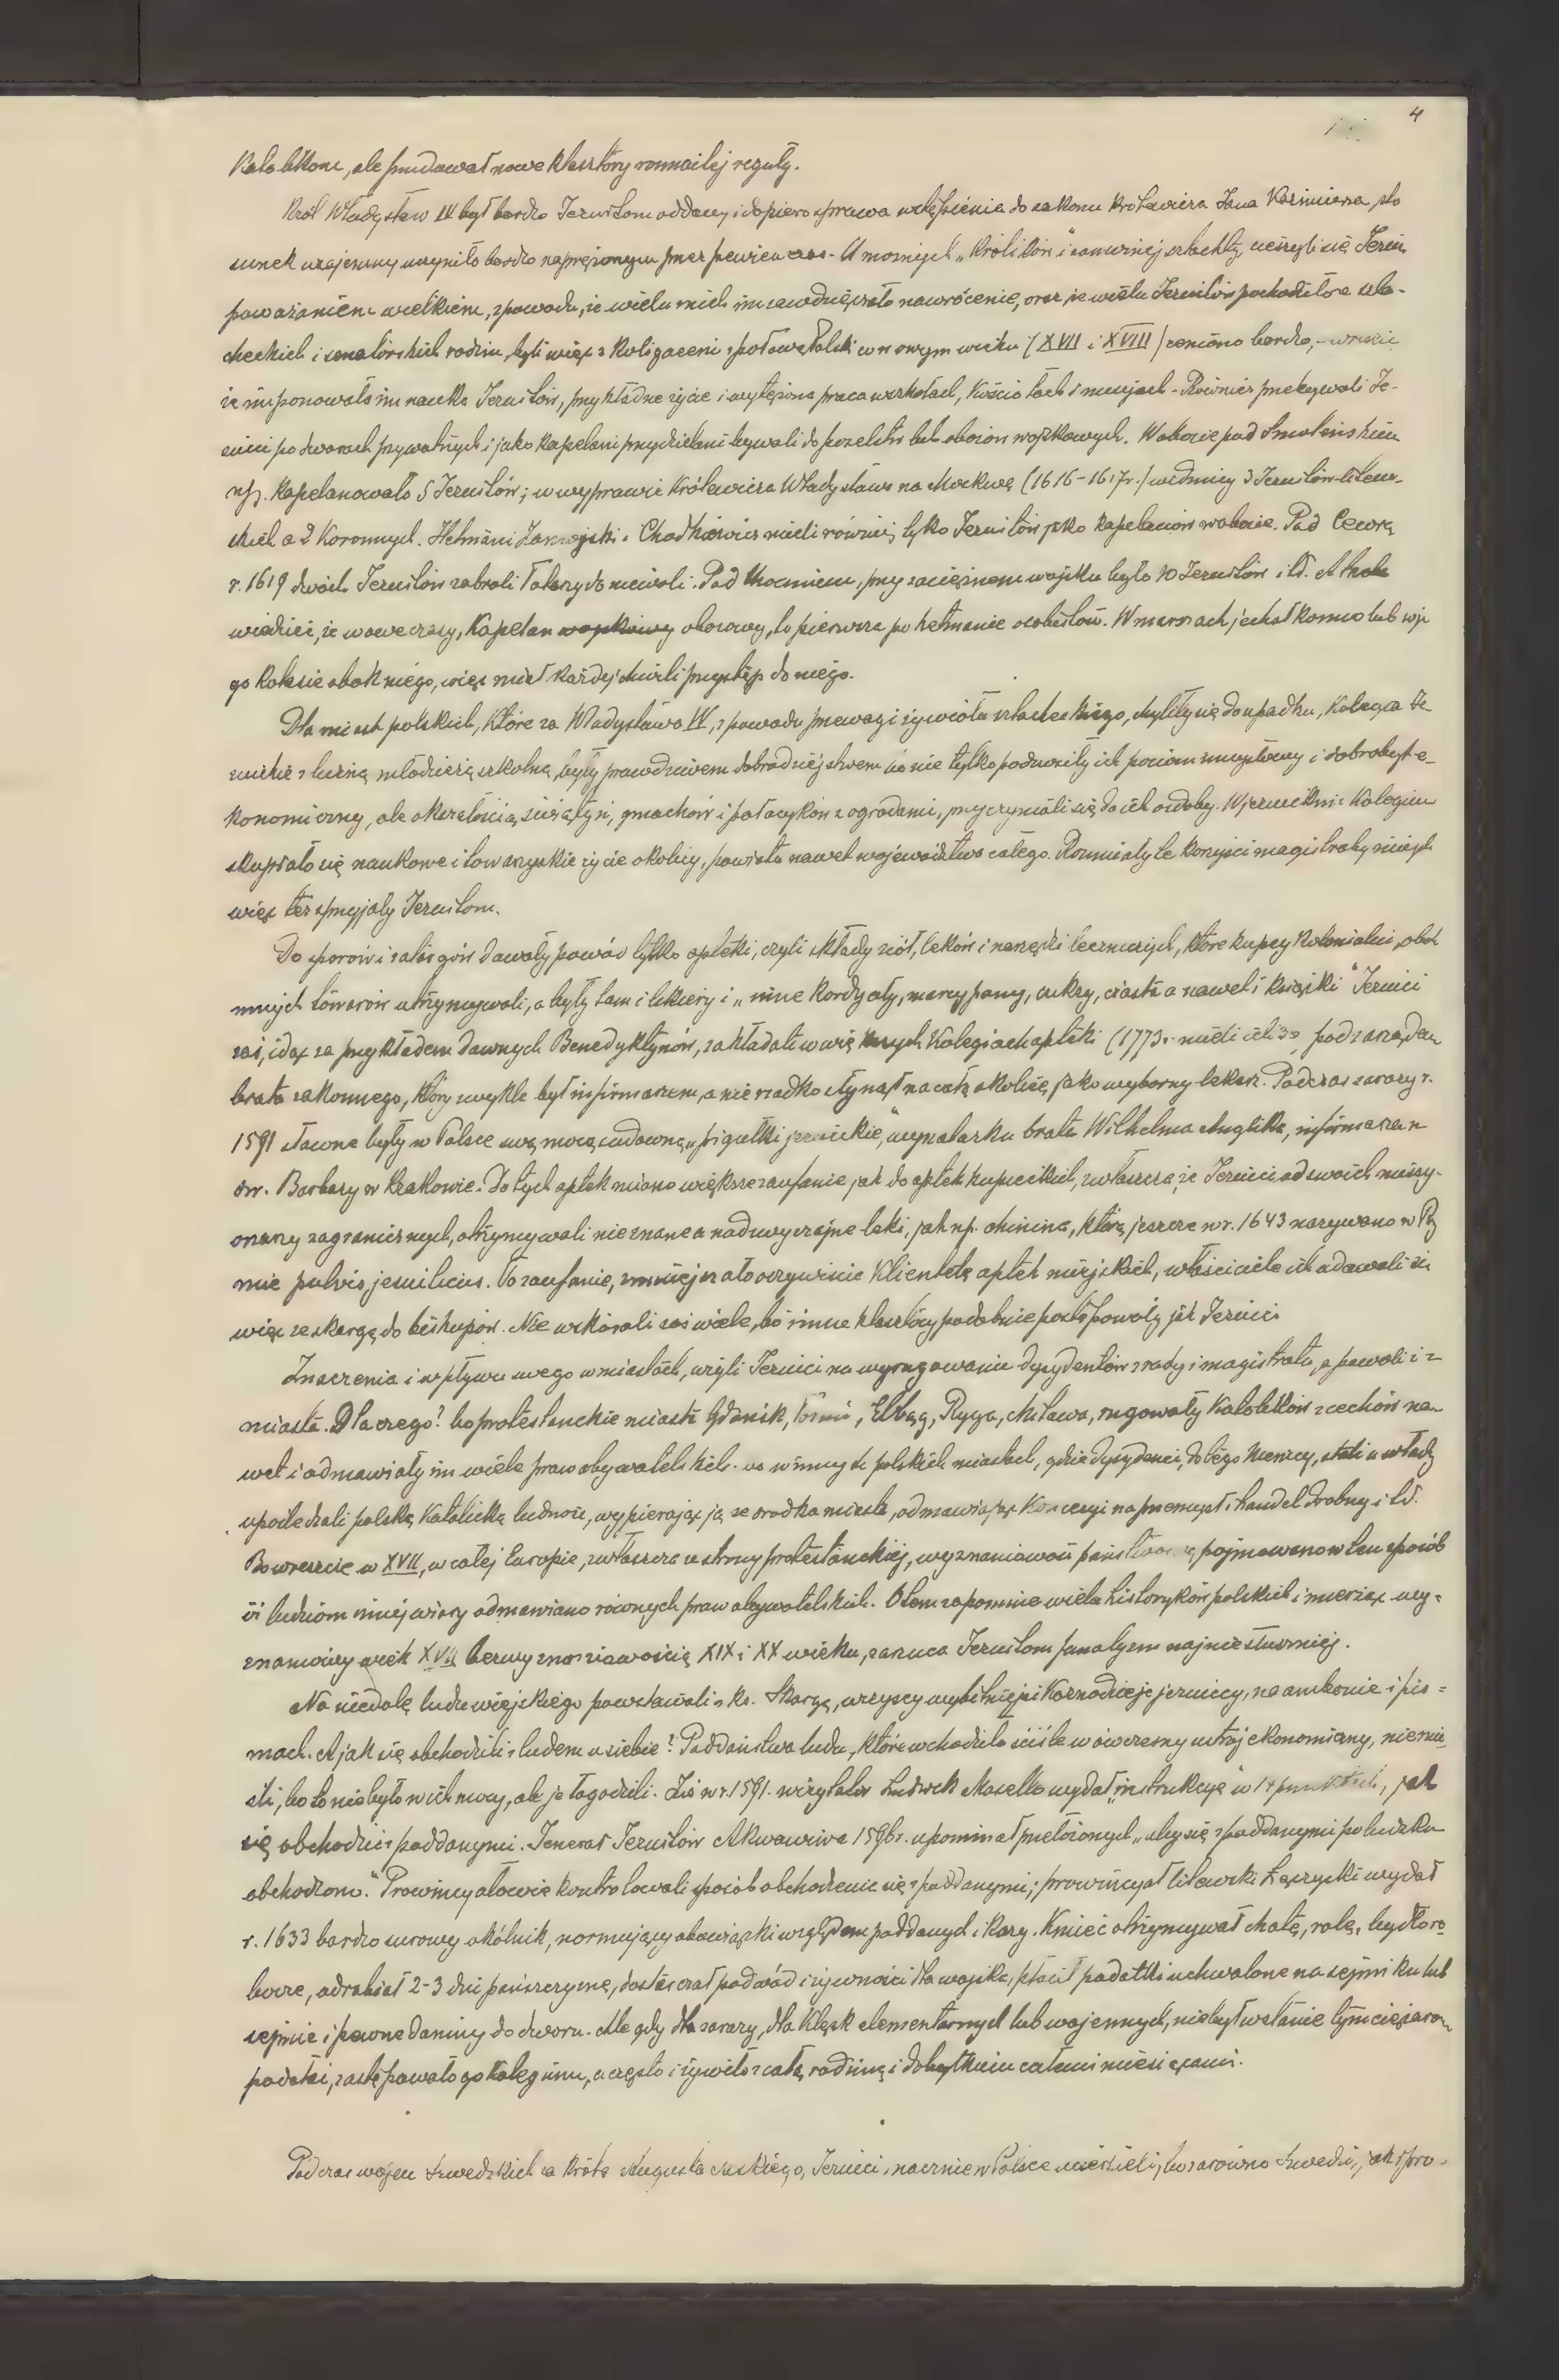 4
Katolikom, ale fundował nowe klasztory rozmaitej reguły.
Król Władysław IV był bardzo Jezuitom oddany i dopiero sprawa wstąpienia do zakonu królewicza Jana Kazimierza, sto
sunek wzajemny uczyniła bardzo naprężonym przez pewien czas. U możnych „królików" i zamożniej szlachty, cieszyli się Jezuici
poważaniem wielkiem, z powodu, że wielu z nich im zawdzięczało nawrócenie, oraz że wielu Jezuitów pochodziło ze szla-
checkich i senatorskich rodzin, byli więc skoligaceni z połową Polski co w owym wieku (XVII i XVIII) ceniono bardzo, – wreszcie
że imponowała im nauka Jezuitów, przykładne życie i wytężona praca w szkołach, kościołach i misyjach. Również przebywali Je-
zuici po dworach prywatnych i jako kapelani przydzielani bywali do poselstw lub obozów wojskowych. W obozie pod Smoleńskiem
np. kapelanowało 5 Jezuitów; w wyprawie królewicza Władysława na Moskwę (1616-1617r.) widzimy 3 Jezuitów litew-
skich a 2 koronnych. Hetmani Zamojski i Chodkiewicz mieli również tylko Jezuitów jako kapelanów w obozie. Pod Cecorą
r. 1619 dwóch Jezuitów zabrali Tatarzy do niewoli. Pod Chocimiem, przy zaciężnem wojsku było 10 Jezuitów itd. A trzeba
wiedzieć, że w owe czasy, kapelan wojskowy obozowy, to pierwsza po hetmanie osobistość. W marszach jechał konno lub w je
go kolesie obok niego, więc miał każdej chwili przystęp do niego.
Dla miast polskich, które za Władysława IV, z powodu przewagi żywiołu szlacheckiego, chyliły się do upadku, kolegia Je
zuickie z liczną młodzieżą szkolną, były prawdziwem dobrodziejstwem bo nie tylko podnosiły ich poziom umysłowy i dobrobyt e-
konomiczny, ale okazałością świątyń, gmachów i pałacyków z ogrodami, przyczyniali się do ich ozdoby. W jezuickim kolegium
skupiało się naukowe i towarzyskie życie okolicy, powiatu nawet województwa całego. Rozumiały te korzyści magistraty miejsk
więc też sprzyjały Jezuitom.
Do sporów i zatargów dawały powód tylko apteki, czyli składy ziół, leków i narzędzi leczniczych, które kupcy kolonialni, obok
innych towarów utrzymywali, a były tam i likiery i „inne kordyały, marcypany, cukry, ciasta a nawet i książki" Jezuici
zaś, idąc za przykładem dawnych Benedyktynów, zakładali w większych kolegiach apteki (1773r. mieli ich 30, pod zarządem
brata zakonnego, który zwykle był infirmarzem, a nierzadko słynął na całą okolicę, jako wyborny lekarz. Podczas zarazy r.
1591 sławne były w Polsce swą mocą cudowną, „pigułki jezuickie", wynalazku brata Wilhelma Anglika, infirmarza u
św. Barbary w Krakowie. Do tych aptek miano większe zaufanie jak do aptek kupieckich, zwłaszcza, że Jezuici od swoich misjy-
onarzy zagranicznych, otrzymywali nieznane a nadzwyczajne leki, jak np. chinina, którą jeszcze w r. 1643 nazywano w Rzy
mie pulvis jesuiticus. To zaufanie, zmniejszało oczywiście klientelę aptek miejskich, właściciele ich udawali się
więc ze skargą do biskupów. Nie wskórali zaś wiele, bo inne klasztory podobnie postępowały jak Jezuici.
Znaczenia i wpływu swego w miastach, użyli Jezuici na wyrugowanie dyzydentów z rady i magistratu, a powoli i z
miasta. Dlaczego? bo protestanckie miasta Gdańsk, Toruń, Elbląg, Ryga, Mitawa, rugowały Katolików z cechów na-
wet i odmawiały im wiele praw obywatelskich. W innych polskich miastach, gdzie dyzydenci, do tego Niemcy, stali u władzy
upośledzali polską katolicką ludność, wypierając ją ze środka miasta, odmawiając koncesyi na przemysł i handel drobny itd.
Bo wreszcie w XVII, w całej Europie, zwłaszcza ze strony protestanckiej, wyznaniowość państwową, pojmowano w ten sposób
iż ludziom innej wiary odmawiano równych praw obywatelskich. O tem zapomina wielu historyków polskich i mierząc wy-
znaniowy wiek XVII bezwyznaniowością XIX i XX wieku, zarzuca Jezuitom fanatyzm najniesłuszniej.
Na niedolę ludu wiejskiego powstawali z ks. Skargą, wszyscy wybitniejsi kaznodzieje jezuiccy, na ambonie i pis=
mach. A jak się obchodzili z ludem u siebie? Poddaństwa ludu, które wchodziło ściśle w ówczesny ustrój ekonomiczny, nie znie-
śli, bo to nie było w ich mocy, ale je łagodzili. Już w r. 1591. wizytator Ludwik Maselli wydał „instrukcyę" w 14 punktach, jak
się obchodzić z poddanymi. Jenerał Jezuitów Akwawiwa 1596r. upominał przełożonych „aby się z poddanymi po ludzku
obchodzono." Prowincyałowie kontrolowali sposób obchodzenia się z poddanymi; prowincyał litewski Łęczycki wydał
r. 1633 bardzo surowy okólnik, normujący obowiązki względem poddanych i kary. Kmieć otrzymywał chatę, rolę, bydło ro
bocze, odrabiał 2-3 dni pańszczyznę, dostarczał podwód i żywności dla wojska, płacił podatki uchwalone na sejmiku lub
sejmie i pewne daniny do dworu. Ale gdy dla zarazy, dla klęsk elementarnych lub wojennych, nie był w stanie tym ciężarom
podołać, zastępowało go kolegium, a często i żywiło z całą rodziną i dobytkiem całemi miesiącami.
Podczas wojen szwedzkich za króla Augusta saskiego, Jezuici znacznie w Polsce ucierpieli, bo zarówno Szwedzi, jak i pro-